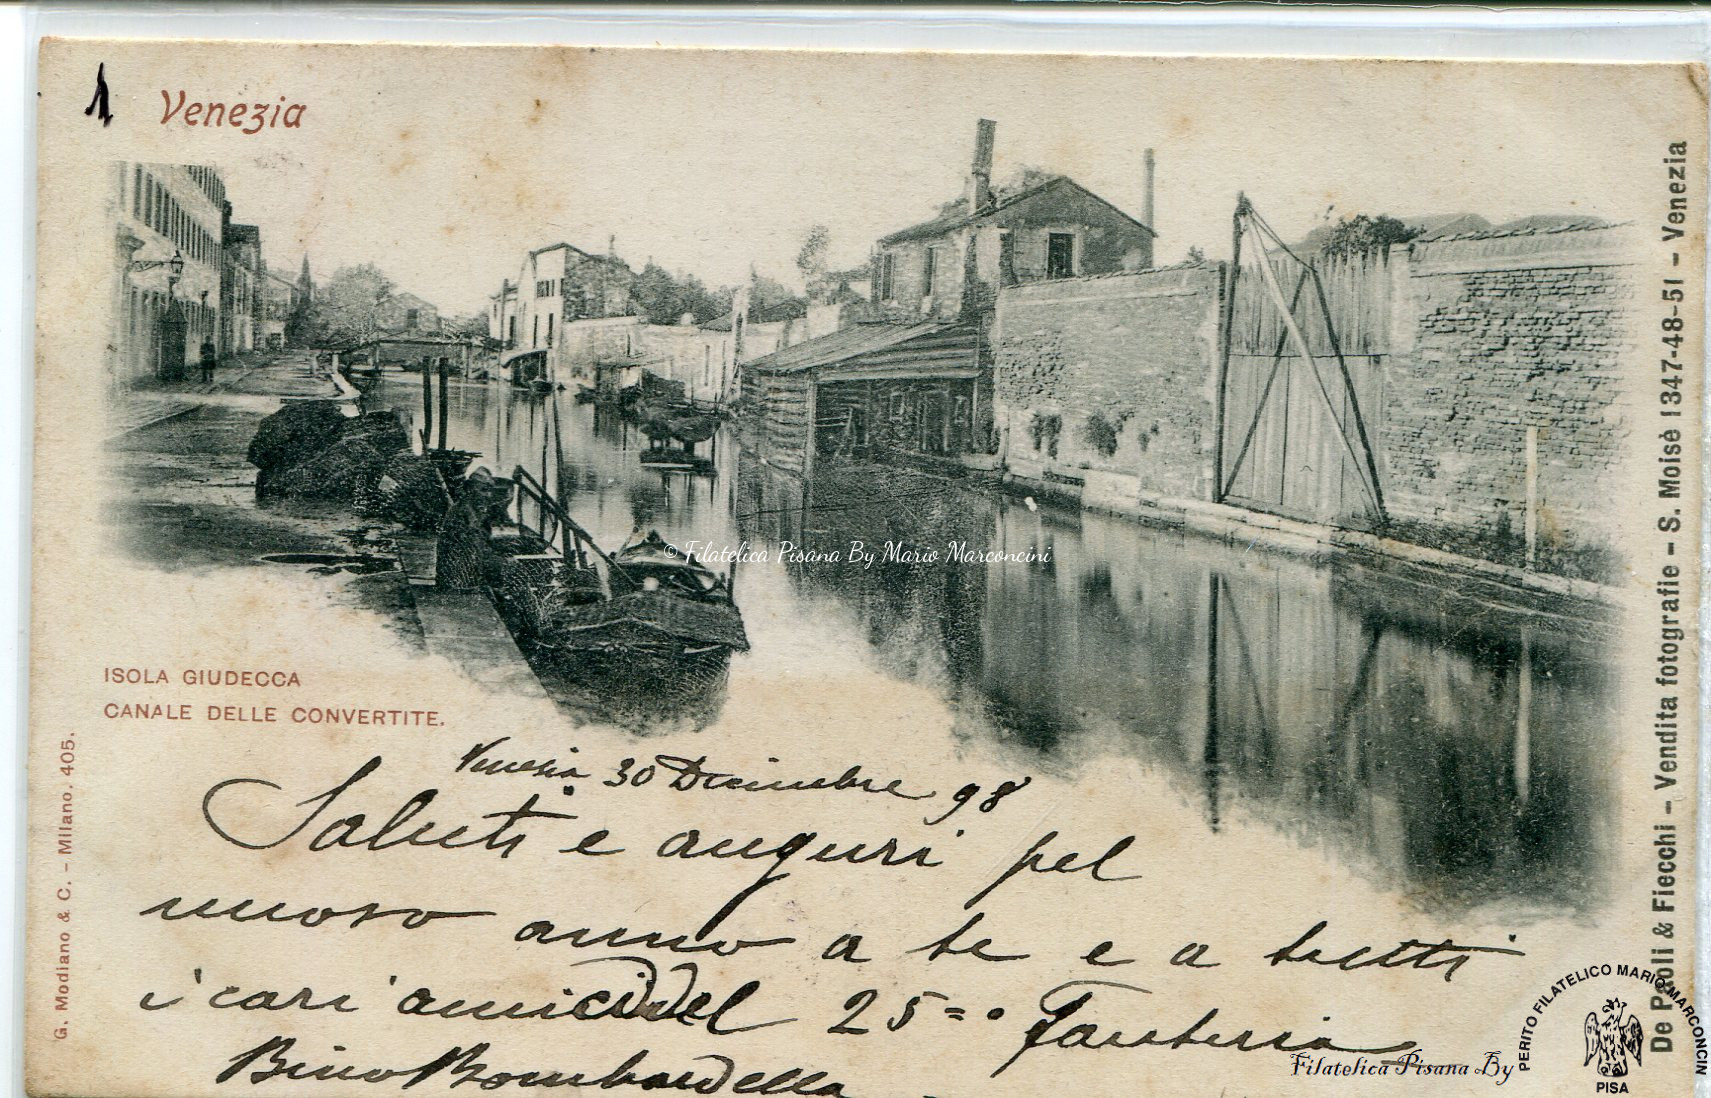 1
Venezia
ISOLA GIUDECCA
CANALE DELLE CONVERTITE.
G. Modiano & C. - Milano. 405.
De Paoli & Fiecchi - Vendita fotografie - S. Moisè 1347-48-51 - Venezia
© Filatelica Pisana By Mario Marconcini
Venezia 30 Dicembre 98
Saluti e auguri pel
nuovo anno a te e a tutti
i cari amici del 25=° Fanteria
Bino Bombardella
Filatelica Pisana By
PERITO FILATELICO MARIO MARCONCINI
PISA